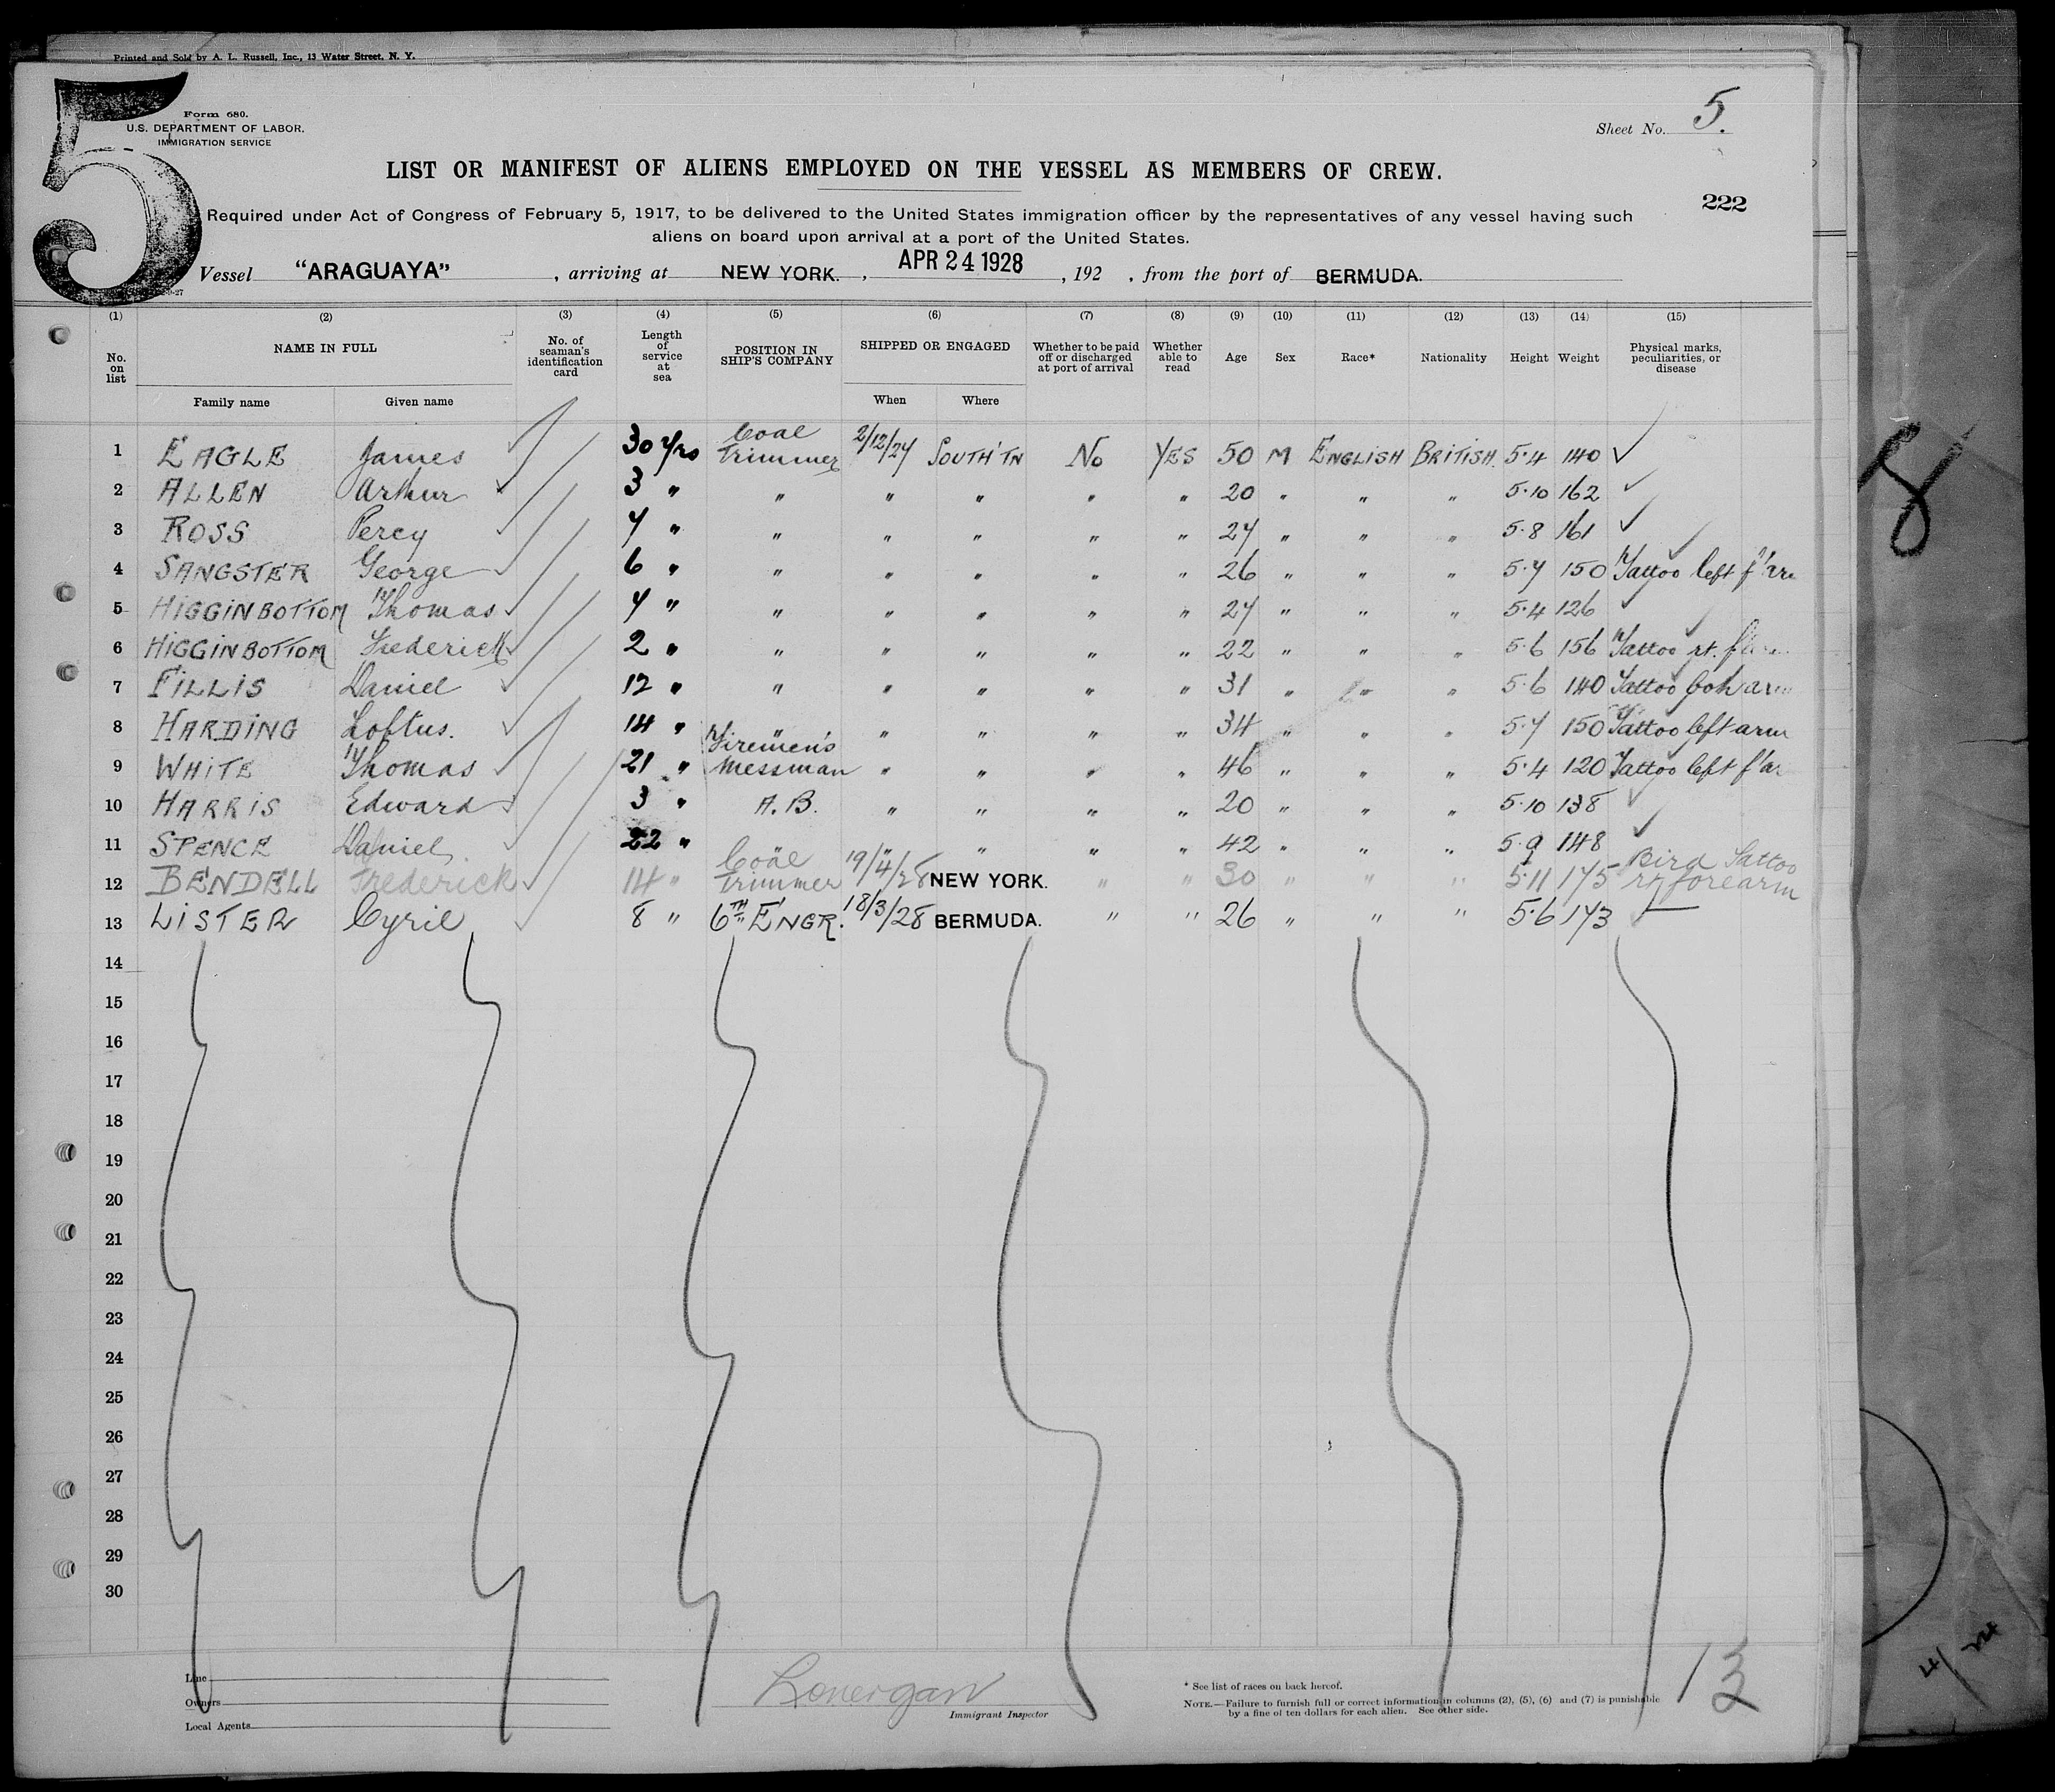 Printed and Sold by A. L. Russell, Inc., 13 Water Street, N. Y.
5
Form 680.
U.S. DEPARTMENT OF LABOR,
IMMIGRATION SERVICE
Sheet No. 5.
LIST OR MANIFEST OF ALIENS EMPLOYED ON THE VESSEL AS MEMBERS OF CREW.
222
Required under Act of Congress of February 5, 1917, to be delivered to the United States immigration officer by the representatives of any vessel having such
aliens on board upon arrival at a port of the United States.
Vessel "ARAGUAYA" , arriving at NEW YORK. , APR 24 1928 , 192 , from the port of BERMUDA.
(1) (2) (3) (4) (5) (6) (7) (8) (9) (10) (11) (12) (13) (14) (15)
No. on list NAME IN FULL No. of seaman's identification card Length of service at sea POSITION IN SHIP'S COMPANY SHIPPED OR ENGAGED Whether to be paid off or discharged at port of arrival Whether able to read Age Sex Race* Nationality Height Weight Physical marks, peculiarities, or disease
Family name Given name When Where
1 EAGLE James 30 yrs Coal Trimmer 2/12/27 SOUTH'TN No YES 50 M ENGLISH BRITISH. 5.4 140 ✓
2 ALLEN Arthur 3 " " " " " " 20 " " " 5.10 162 ✓
3 ROSS Percy 7 " " " " " " 27 " " " 5.8 161 ✓
4 SANGSTER George 6 " " " " " " 26 " " " 5.7 150 Tattoo left f'arm
5 HIGGINBOTTOM Thomas 7 " " " " " " 27 " " " 5.4 126 ✓
6 HIGGINBOTTOM Frederick 2 " " " " " " 22 " " " 5.6 156 Tattoo rt. f'arm
7 FILLIS Daniel 12 " " " " " " 31 " " " 5.6 140 Tattoo both arms
8 HARDING Loftus. 14 " " " " " " 34 " " " 5.7 150 Tattoo left arm
9 WHITE Thomas 21 " Firemen's Messman " " " " 46 " " " 5.4 120 Tattoo left f'ar
10 HARRIS Edward 3 " A.B. " " " " 20 " " " 5.10 138 ✓
11 SPENCE Daniel 22 " " " " " " 42 " " " 5.9 148 ✓
12 BENDELL Frederick 14 " Coal Trimmer 19/4/28 NEW YORK. " " 30 " " " 5.11 175 Bird Tattoo rt. forearm
13 LISTER Cyril 8 " 6TH ENGR. 18/3/28 BERMUDA. " " 26 " " " 5.6 173 —
14
15
16
17
18
19
20
21
22
23
24
25
26
27
28
29
30
Line
Owners
Local Agents
Lonergan
Immigrant Inspector
* See list of races on back hereof.
NOTE.—Failure to furnish full or correct information in columns (2), (5), (6) and (7) is punishable
by a fine of ten dollars for each alien. See other side.
13
8
4/24